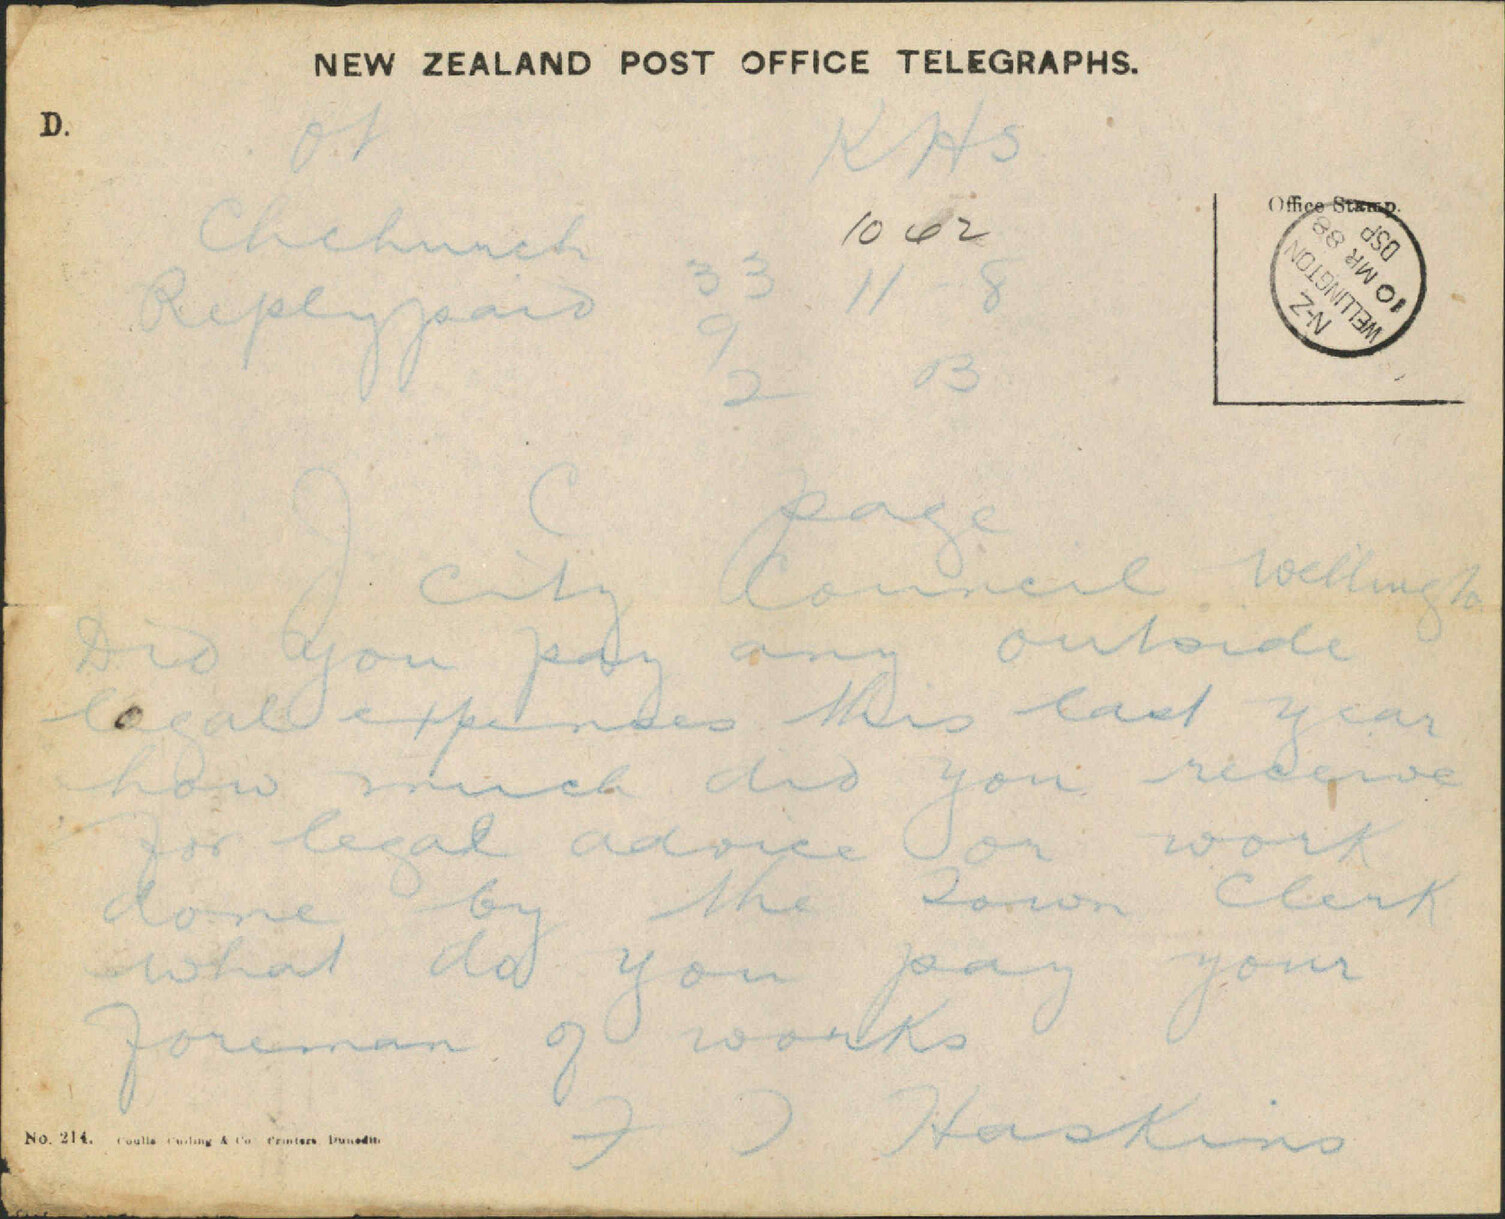 NEW ZEALAND POST OFFICE TELEGRAPHS.
D.
Office Stamp.
N-Z
WELLINGTON
10 MR 88
DSP
KHS
Chchurch
10 62
Replypaid
33
11-8
9
2
J C page
City Council Wellingto
Did you pay any outside
legal expenses this last year
how much did you receive
for legal advice or work
done by the Town Clerk
what do you pay your
foreman of works
Haskins
No. 214.
Coulls Culling & Co Printers Dunedin